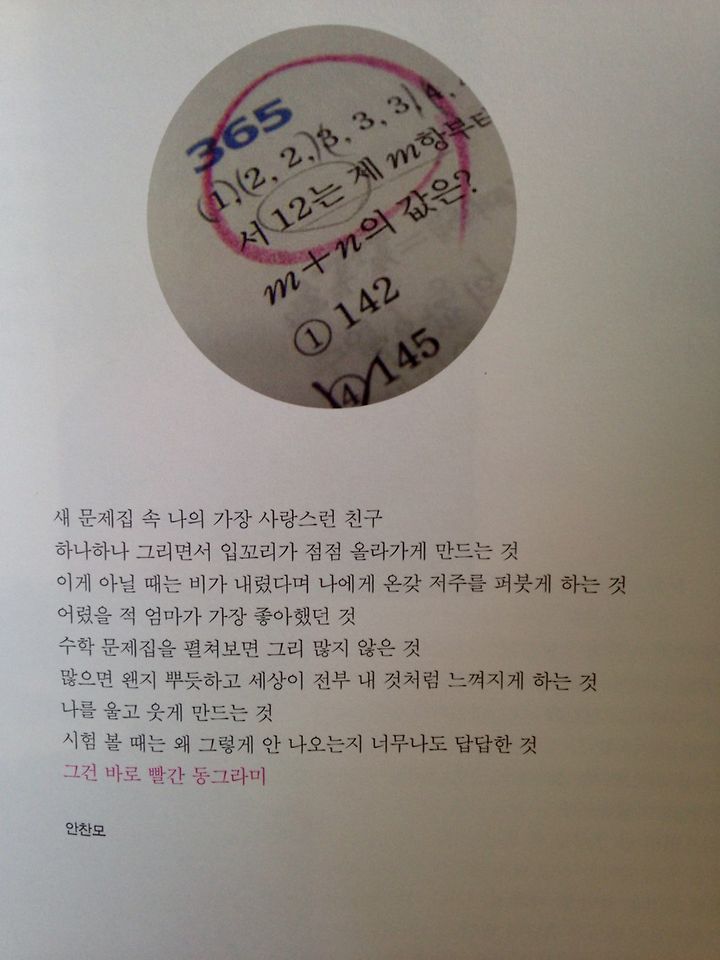 365
(1),(2, 2,)3, 3, 3) 4,
서 12는 제 m항부터
m+n의 값은?
① 142
④ 145
새 문제집 속 나의 가장 사랑스런 친구
하나하나 그리면서 입꼬리가 점점 올라가게 만드는 것
이게 아닐 때는 비가 내렸다며 나에게 온갖 저주를 퍼붓게 하는 것
어렸을 적 엄마가 가장 좋아했던 것
수학 문제집을 펼쳐보면 그리 많지 않은 것
많으면 왠지 뿌듯하고 세상이 전부 내 것처럼 느껴지게 하는 것
나를 울고 웃게 만드는 것
시험 볼 때는 왜 그렇게 안 나오는지 너무나도 답답한 것
그건 바로 빨간 동그라미
안찬모